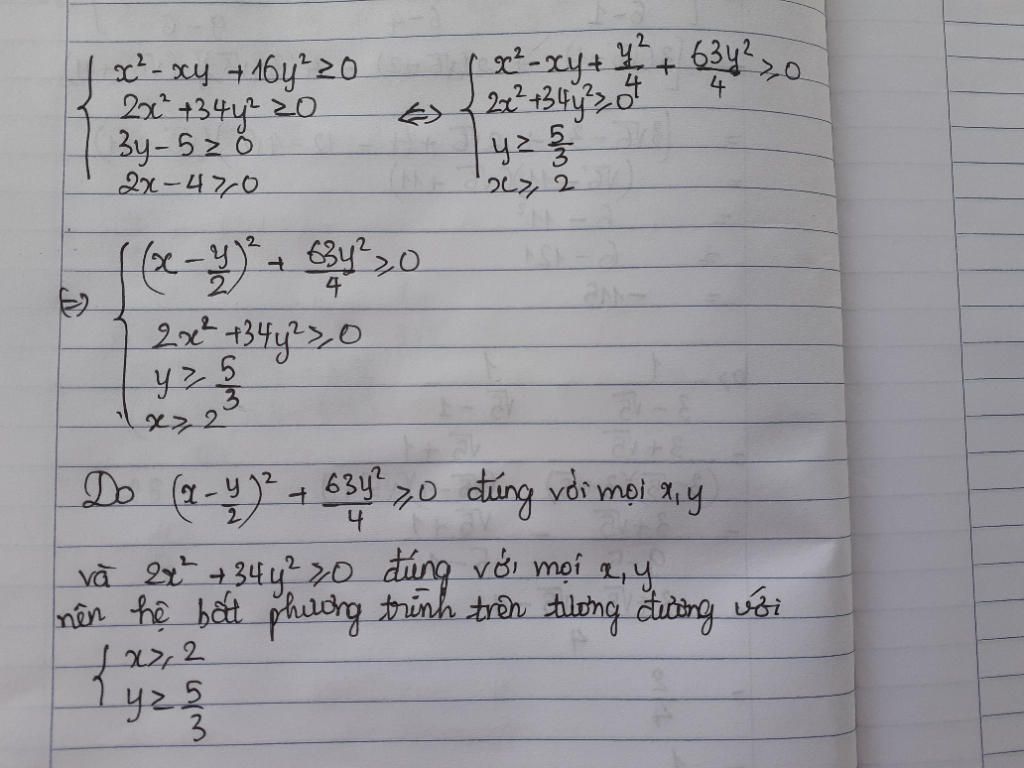 { x² - xy + 16y² ≥ 0
2x² + 34y² ≥ 0
3y - 5 ≥ 0
2x - 4 ≥ 0
⇔ { x² - xy + y²/4 + 63y²/4 ≥ 0
2x² + 34y² ≥ 0
y ≥ 5/3
x ≥ 2
⇔ { (x - y/2)² + 63y²/4 ≥ 0
2x² + 34y² ≥ 0
y ≥ 5/3
x ≥ 2
Do (x - y/2)² + 63y²/4 ≥ 0 đúng với mọi x, y
và 2x² + 34y² ≥ 0 đúng với mọi x, y
nên hệ bất phương trình trên tương đương với
{ x ≥ 2
y ≥ 5/3